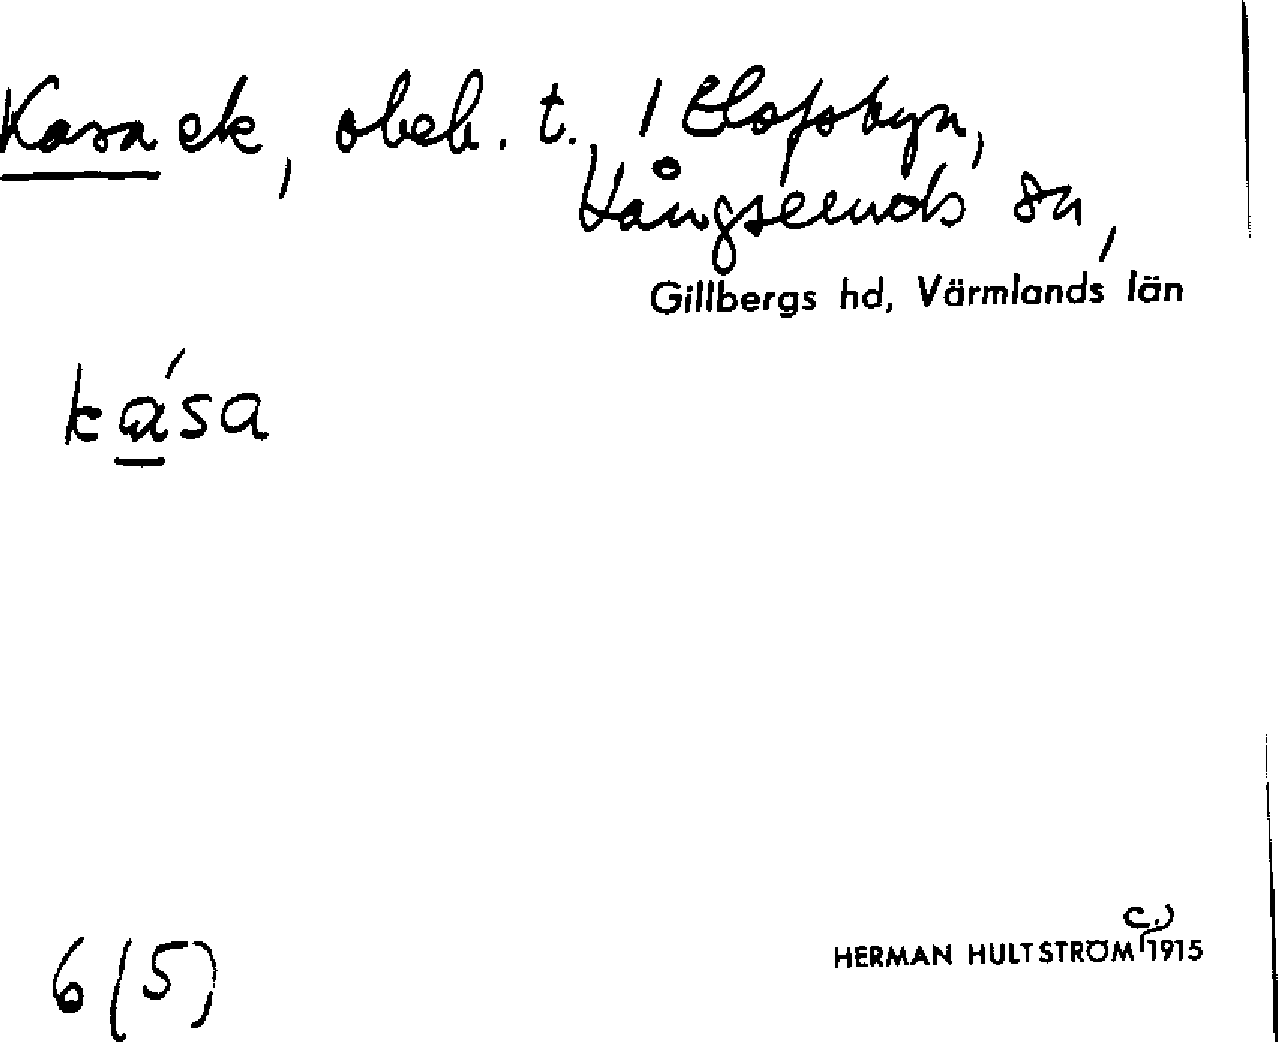 Kasa ek, obeb. t. 1 Elofsbyn,
Långseruds sn,
Gillbergs hd, Värmlands län
kása
6 (5)
C.)
HERMAN HULTSTRÖM 1915